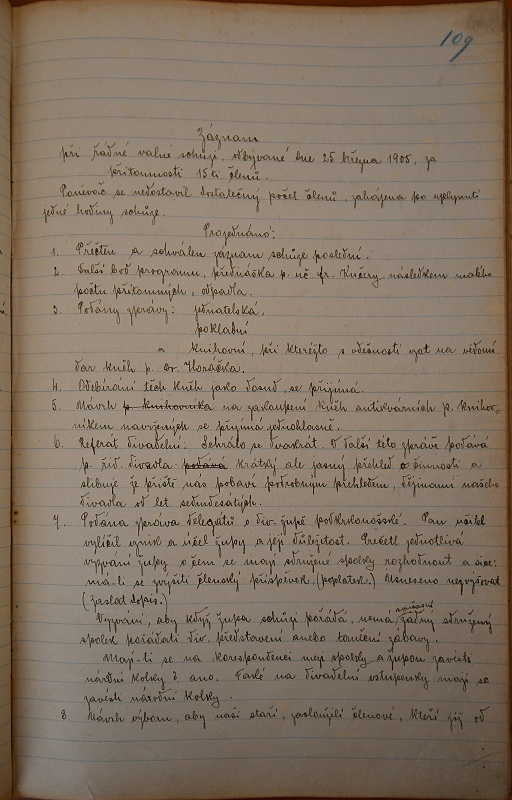 109
Záznam
při řádné valné schůzi, odbývané dne 25 března 1905, za
přítomnosti 15ti členů.
Poněvač se nedostavil dostatečný počet členů, zahájena po uplynutí
jedné hodiny schůze.
Projednáno:
1. Přečten a schválen záznam schůze poslední.
2. Další bod programu, přednáška p. uč. fr. Kučery následkem malého
počtu přítomných, odpadla.
3. Podány zprávy: jednatelská,
pokladní
a knihovní, při kteréjto s vděčností vzat na vědomí
dar kněh p. Dr. Horáčka.
4. Odebírání těch kněh jako dosud, se přijímá.
5. Návrh p. knihovníka na zakoupení kněh antikvárních p. knihov-
níkem navržených se přijímá jednohlasně.
6. Referát divadelní: Sehrálo se dvakrát. V další této zprávě podává
p. řid. divadla podává krátký ale jasný přehled o činnosti a
slibuje že příště nás pobaví podrobným přehledem, dějinami našeho
divadla od let sedmdesátých.
7. Podána zpráva delegátů o div. župě podkrkonošské. Pan učitel
vylíčil vznik a účel župy a její důležitost. Přečetl jednotlivá
vyzvání župy o čem se mají sdružené spolky rozhodnout a sice:
má-li se zvýšiti členský příspěvek, (poplatek.) Usneseno nezvyšovat
(zaslat dopis.)
Vyzvání, aby když župa schůzi pořádá, nemá žádný sdružený
spolek pořádati div. představení anebo taneční zábavy.
Mají-li se na korespondenci mezi spolky a župou zavésti
národní kolky? ano. Také na divadelní vstupenky mají se
zavésti národní kolky.
8. Návrh výboru, aby naši staří, zasloužilí členové, kteří již od